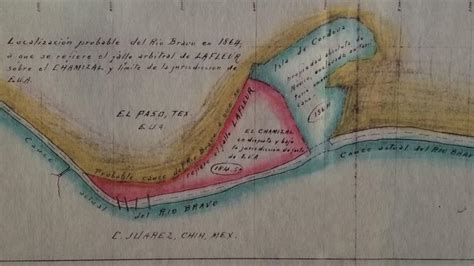 Localización probable del Río Bravo en 1864,
a que se refiere el fallo arbitral de LAFLEUR
sobre el CHAMIZAL y límite de la jurisdicción de
E.U.A.
Isla de Cordova
propiedad absoluta
México,
1864
EL PASO, TEX.
E.U.A.
Probable cauce del R. Bravo a que se
refiere el fallo LAFLEUR
EL CHAMIZAL
en disputa y bajo
la jurisdicción de facto
de EUA
Cauce actual del RIO BRAVO
Cauce actual del RIO BRAVO
C. JUAREZ, CHIH. MEX.